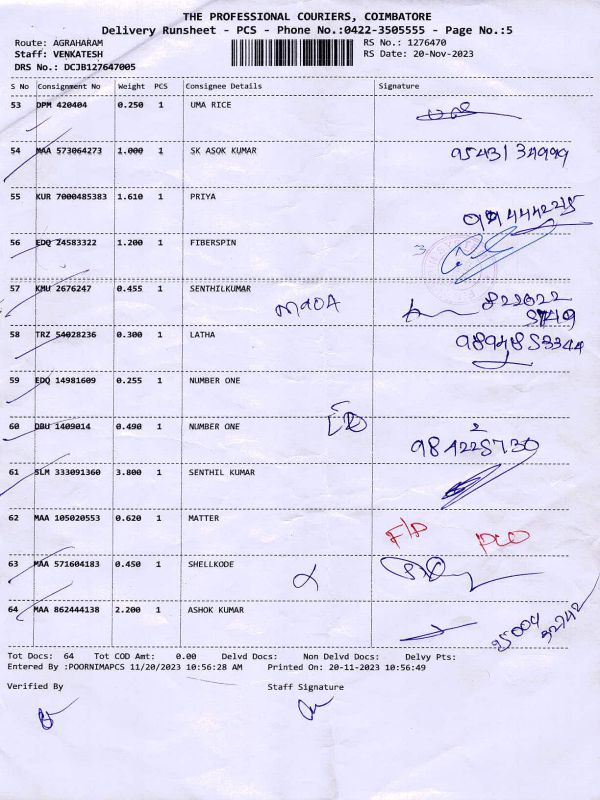 THE PROFESSIONAL COURIERS, COIMBATORE
Delivery Runsheet - PCS - Phone No.:0422-3505555 - Page No.:5
Route: AGRAHARAM RS No.: 1276470
Staff: VENKATESH RS Date: 20-Nov-2023
DRS No.: DCJB127647005
S No Consignment No Weight PCS Consignee Details Signature
53 DPM 420404 0.250 1 UMA RICE
54 MAA 573064273 1.000 1 SK ASOK KUMAR 95431 34999
55 KUR 7000485383 1.610 1 PRIYA
56 EDQ 24583322 1.200 1 FIBERSPIN
57 KMU 2676247 0.455 1 SENTHILKUMAR
58 TRZ 54028236 0.300 1 LATHA
59 EDQ 14981609 0.255 1 NUMBER ONE
60 DBU 1409014 0.490 1 NUMBER ONE
61 SLM 333091360 3.800 1 SENTHIL KUMAR
62 MAA 105020553 0.620 1 MATTER
63 MAA 571604183 0.450 1 SHELLKODE
64 MAA 862444138 2.200 1 ASHOK KUMAR
Tot Docs: 64 Tot COD Amt: 0.00 Delvd Docs: Non Delvd Docs: Delvy Pts:
Entered By :POORNIMAPCS 11/20/2023 10:56:28 AM Printed On: 20-11-2023 10:56:49
Verified By Staff Signature